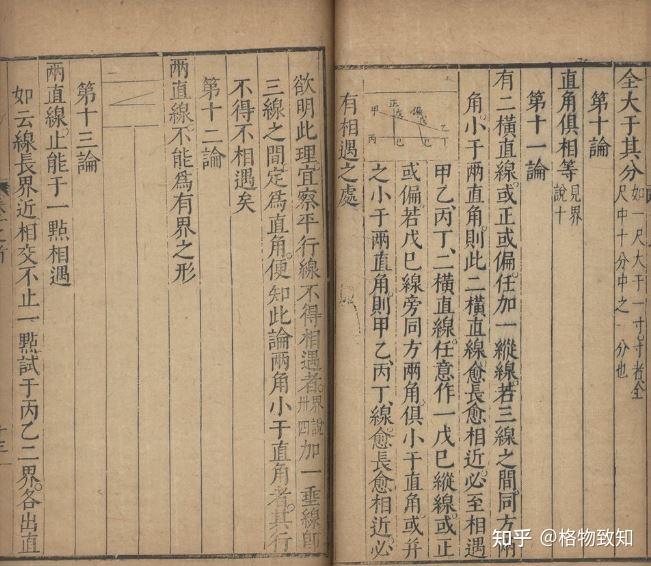 全大于其分
如一尺大于一寸寸者全
尺中十分中之一分也
第十論
直角俱相等
見界
說十
第十一論
有二橫直線或正或偏任加一縱線若三線之間同方兩
角小于兩直角則此二橫直線愈長愈相近必至相遇
甲乙丙丁二橫直線任意作一戊己縱線或正
或偏若戊己線旁同方兩角俱小于直角或并
之小于兩直角則甲乙丙丁線愈長愈相近必
有相遇之處
甲
正戊
偏戊
乙
丙
己
己
丁
欲明此理宜察平行線不得相遇者
界說
卅四
加一垂線即
三線之間定為直角便知此論兩角小于直角者其行
不得不相遇矣
第十二論
兩直線不能為有界之形
第十三論
兩直線止能于一點相遇
如云線長界近相交不止一點試于丙乙二界各出直
知乎 @格物致知